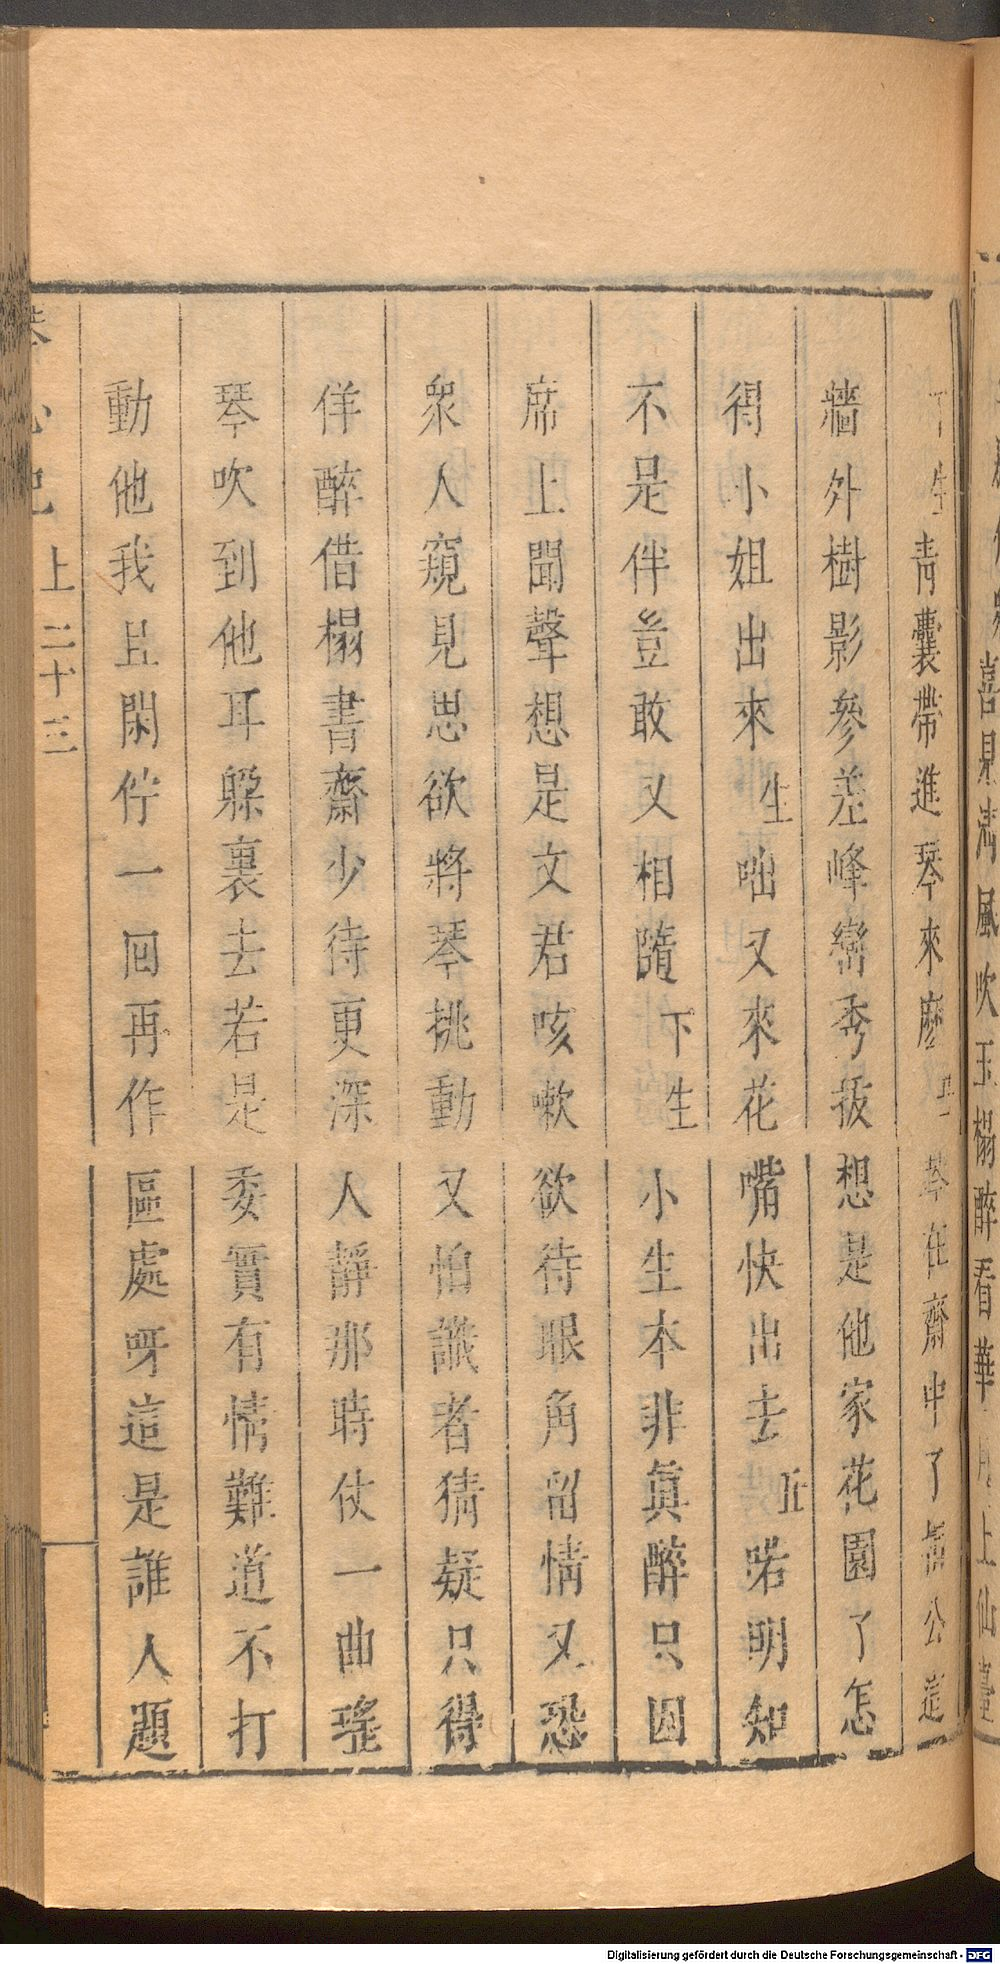 喜見滿風吹玉榻醉看華月上仙臺
下生青囊帶進琴來麽丑琴在齋中了相公這
牆外樹影參差峰巒秀拔想是他家花園了怎
得小姐出來生咄又來花嘴快出去丑喏明知
不是伴豈敢又相隨下生小生本非眞醉只因
席上聞聲想是文君咳嗽欲待眼角留情又恐
衆人窺見思欲將琴挑動又怕識者猜疑只得
佯醉借榻書齋少待更深人靜那時仗一曲瑤
琴吹到他耳躲裏去若是委實有情難道不打
動他我且閑佇一回再作區處呀這是誰人題
琴心記 上 二十三
Digitalisierung gefördert durch die Deutsche Forschungsgemeinschaft - DFG